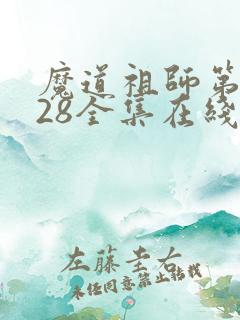 魔道祖師第
28全集在綫
左藤圭右
未经同意禁止转载